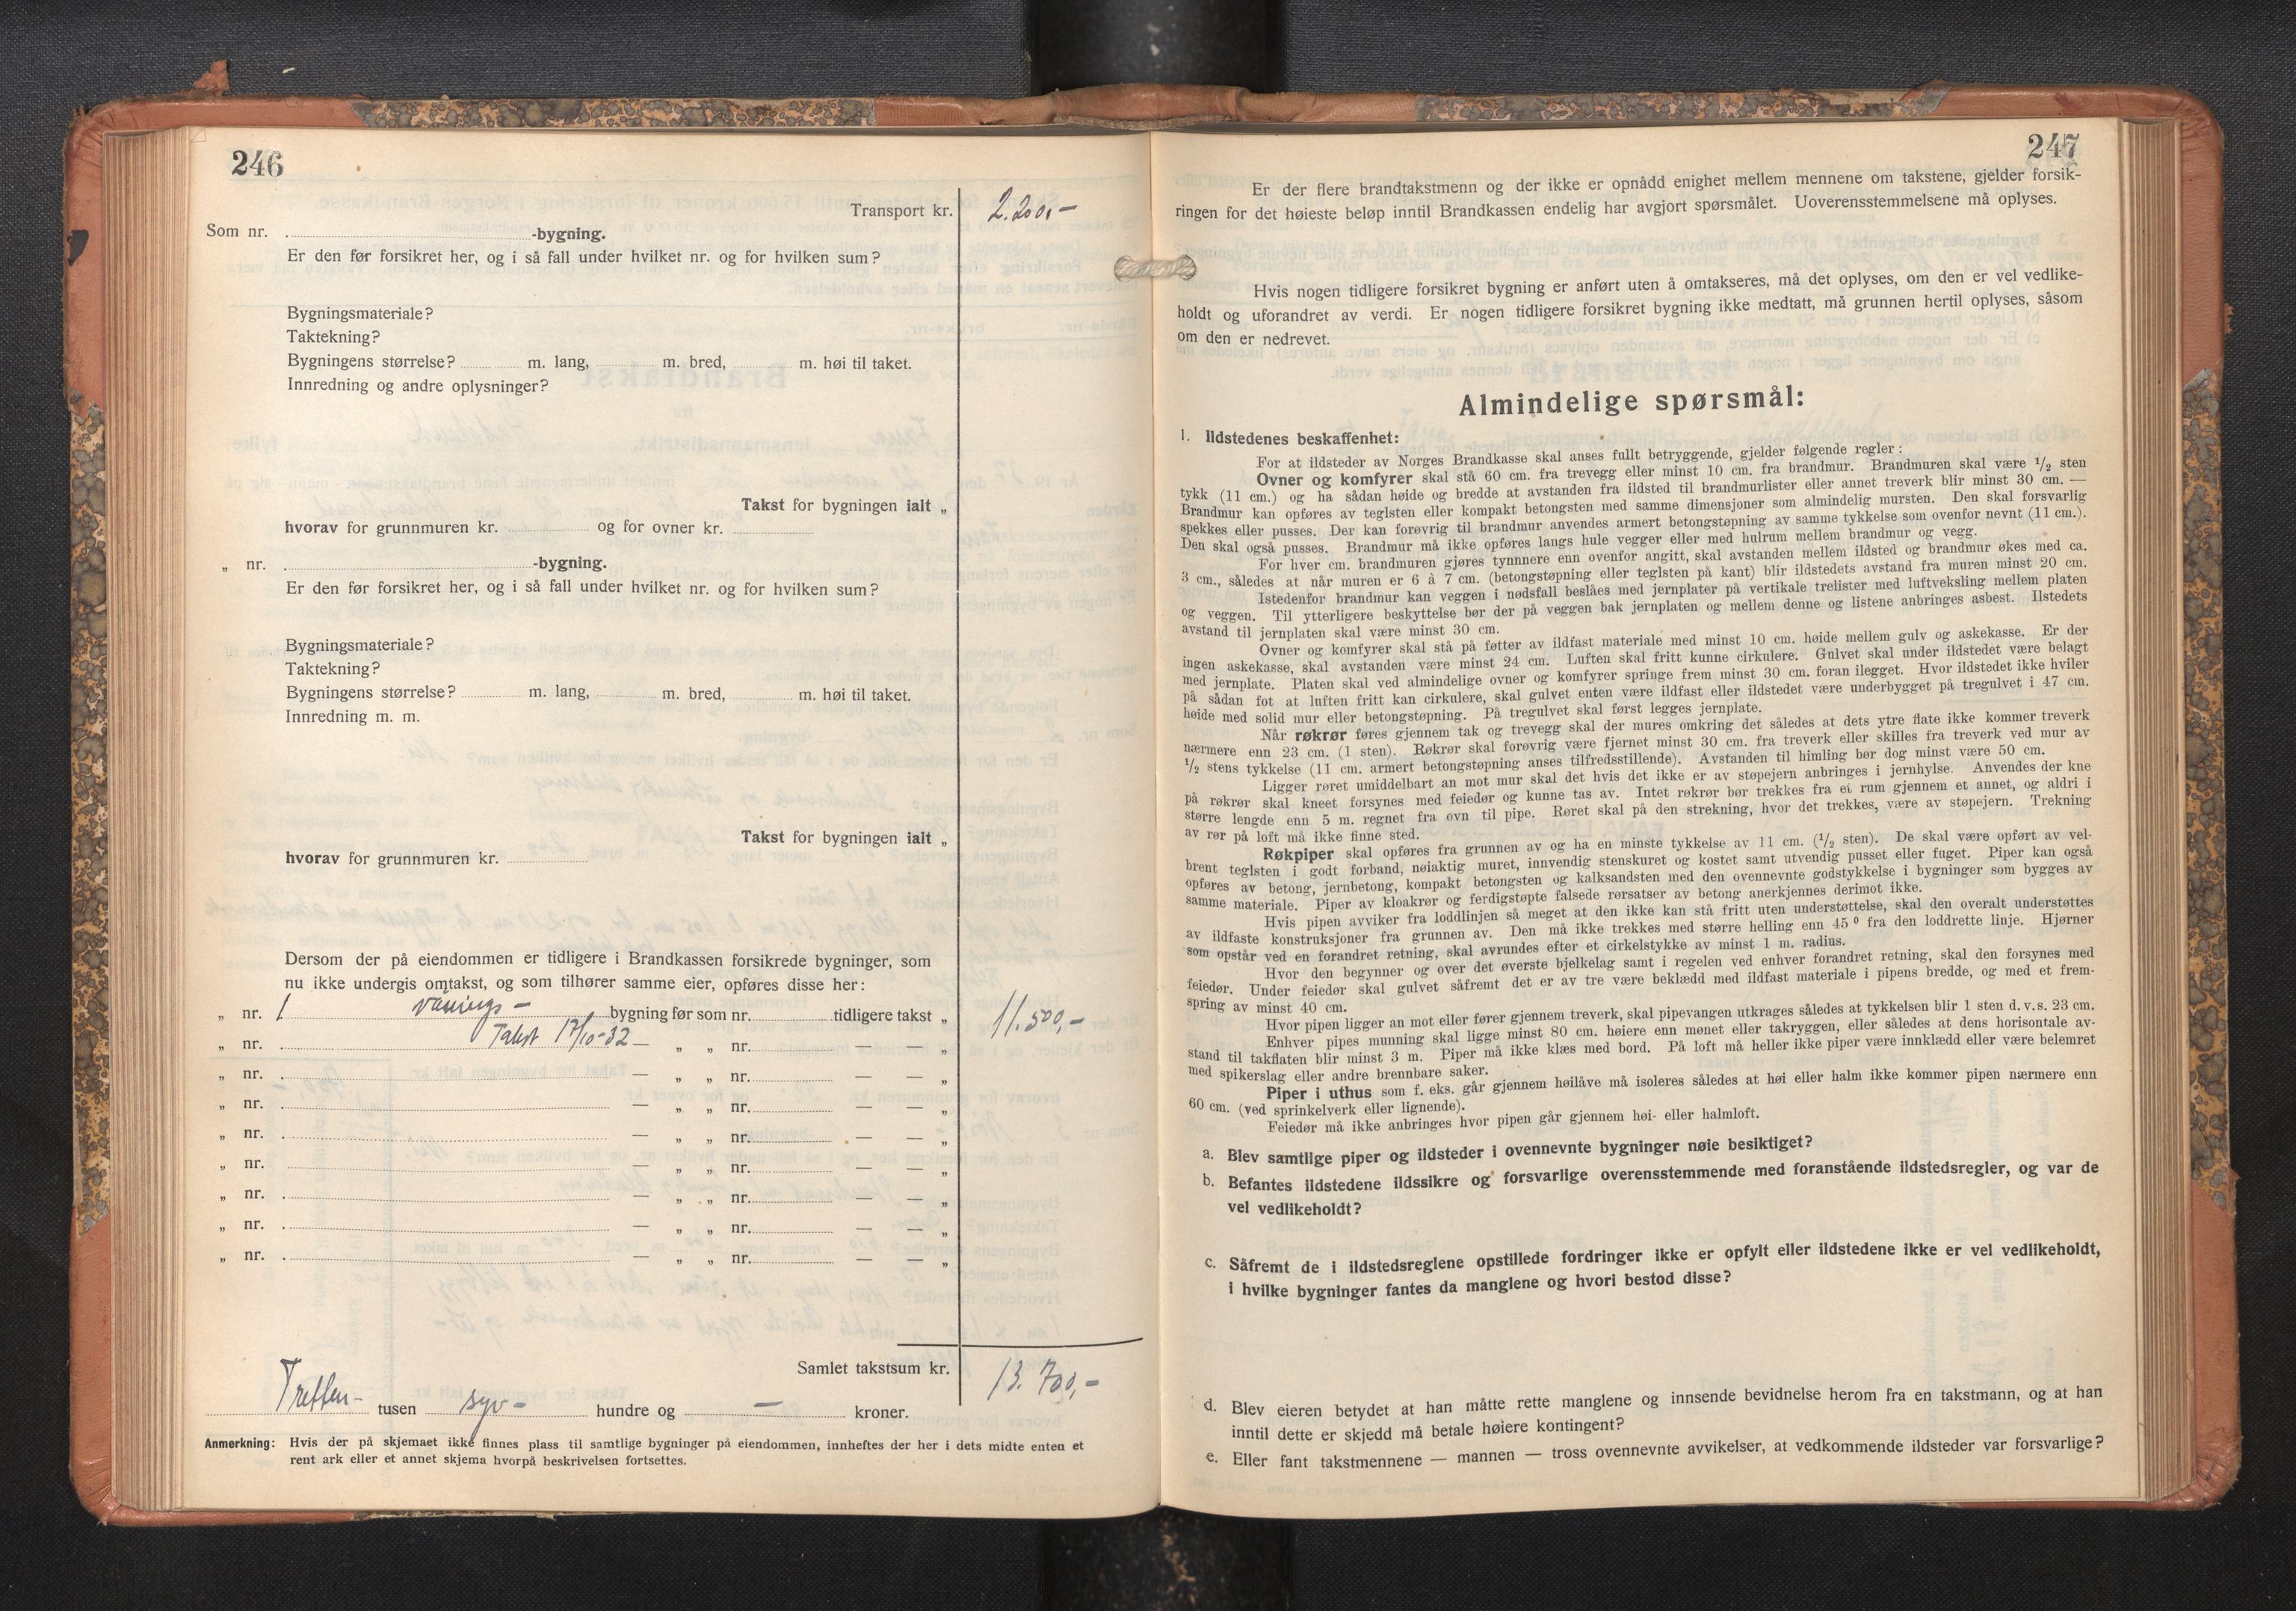 246
Transport kr. 2.200,-
Som nr. -bygning.
Er den før forsikret her, og i så fall under hvilket nr. og for hvilken sum?
Bygningsmateriale?
Taktekning?
Bygningens størrelse? m. lang, m. bred, m. høi til taket.
Innredning og andre oplysninger?
Takst for bygningen ialt „
hvorav for grunnmuren kr. og for ovner kr.
„ nr. -bygning.
Er den før forsikret her, og i så fall under hvilket nr. og for hvilken sum?
Bygningsmateriale?
Taktekning?
Bygningens størrelse? m. lang, m. bred, m. høi til taket.
Innredning m. m.
Takst for bygningen ialt „
hvorav for grunnmuren kr.
Dersom der på eiendommen er tidligere i Brandkassen forsikrede bygninger, som
nu ikke undergis omtakst, og som tilhører samme eier, opføres disse her:
„ nr. 1 vånings- bygning før som nr. tidligere takst „ 11.500,-
„ nr. Takst 17/10-32 — „ „ nr. — — „
„ nr. — „ „ nr. — — „
„ nr. — „ „ nr. — — „
„ nr. — „ „ nr. — — „
„ nr. — „ „ nr. — — „
„ nr. — „ „ nr. — — „
„ nr. — „ „ nr. — — „
„ nr. — „ „ nr. — — „
Samlet takstsum kr. 13.700,-
Tretten- tusen syv- hundre og — kroner.
Anmerkning: Hvis der på skjemaet ikke finnes plass til samtlige bygninger på eiendommen, innheftes der her i dets midte enten et
rent ark eller et annet skjema hvorpå beskrivelsen fortsettes.
247
Er der flere brandtakstmenn og der ikke er opnådd enighet mellem mennene om takstene, gjelder forsik-
ringen for det høieste beløp inntil Brandkassen endelig har avgjort spørsmålet. Uoverensstemmelsene må oplyses.
Hvis nogen tidligere forsikret bygning er anført uten å omtakseres, må det oplyses, om den er vel vedlike-
holdt og uforandret av verdi. Er nogen tidligere forsikret bygning ikke medtatt, må grunnen hertil oplyses, såsom
om den er nedrevet.
Almindelige spørsmål:
1. Ildstedenes beskaffenhet:
For at ildsteder av Norges Brandkasse skal anses fullt betryggende, gjelder følgende regler:
Ovner og komfyrer skal stå 60 cm. fra trevegg eller minst 10 cm. fra brandmur. Brandmuren skal være 1/2 sten
tykk (11 cm.) og ha sådan høide og bredde at avstanden fra ildsted til brandmurlister eller annet treverk blir minst 30 cm. —
Brandmur kan opføres av teglsten eller kompakt betongsten med samme dimensjoner som almindelig mursten. Den skal forsvarlig
spekkes eller pusses. Der kan forøvrig til brandmur anvendes armert betongstøpning av samme tykkelse som ovenfor nevnt (11 cm.).
Den skal også pusses. Brandmur må ikke opføres langs hule vegger eller med hulrum mellem brandmur og vegg.
For hver cm. brandmuren gjøres tynnnere enn ovenfor angitt, skal avstanden mellem ildsted og brandmur økes med ca.
3 cm., således at når muren er 6 à 7 cm. (betongstøpning eller teglsten på kant) blir ildstedets avstand fra muren minst 20 cm.
Istedenfor brandmur kan veggen i nødsfall beslåes med jernplater på vertikale trelister med luftveksling mellem platen
og veggen. Til ytterligere beskyttelse bør der på veggen bak jernplaten og mellem denne og listene anbringes asbest. Ilstedets
avstand til jernplaten skal være minst 30 cm.
Ovner og komfyrer skal stå på føtter av ildfast materiale med minst 10 cm. høide mellem gulv og askekasse. Er der
ingen askekasse, skal avstanden være minst 24 cm. Luften skal fritt kunne cirkulere. Gulvet skal under ildstedet være belagt
med jernplate. Platen skal ved almindelige ovner og komfyrer springe frem minst 30 cm. foran ilegget. Hvor ildstedet ikke hviler
på sådan fot at luften fritt kan cirkulere, skal gulvet enten være ildfast eller ildstedet være underbygget på tregulvet i 47 cm.
høide med solid mur eller betongstøpning. På tregulvet skal først legges jernplate.
Når røkrør føres gjennem tak og trevegg skal der mures omkring det således at dets ytre flate ikke kommer treverk
nærmere enn 23 cm. (1 sten). Røkrør skal forøvrig være fjernet minst 30 cm. fra treverk eller skilles fra treverk ved mur av
1/2 stens tykkelse (11 cm. armert betongstøpning anses tilfredsstillende). Avstanden til himling bør dog minst være 50 cm.
Ligger røret umiddelbart an mot mur skal det hvis det ikke er av støpejern anbringes i jernhylse. Anvendes der kne
på røkrør skal kneet forsynes med feiedør og kunne tas av. Intet røkrør bør trekkes fra ei rum gjennem et annet, og aldri i
større lengde enn 5 m. regnet fra ovn til pipe. Røret skal på den strekning, hvor det trekkes, være av støpejern. Trekning
av rør på loft må ikke finne sted.
Røkpiper skal opføres fra grunnen av og ha en minste tykkelse av 11 cm. (1/2 sten). De skal være opført av vel-
brent teglsten i godt forband, nøiaktig muret, innvendig stenskuret og kostet samt utvendig pusset eller fuget. Piper kan også
opføres av betong, jernbetong, kompakt betongsten og kalksandsten med den ovennevnte godstykkelse i bygninger som bygges av
samme materiale. Piper av kloakrør og ferdigstøpte falsede rørsatser av betong anerkjennes derimot ikke.
Hvis pipen avviker fra loddlinjen så meget at den ikke kan stå fritt uten understøttelse, skal den overalt understøttes
av ildfaste konstruksjoner fra grunnen av. Den må ikke trekkes med større helling enn 45° fra den loddrette linje. Hjørner
som opstår ved en forandret retning, skal avrundes efter et cirkelstykke av minst 1 m. radius.
Hvor den begynner og over det øverste bjelkelag samt i regelen ved enhver forandret retning, skal den forsynes med
feiedør. Under feiedør skal gulvet såfremt det er av tre være beklædd med ildfast materiale i pipens bredde, og med et frem-
spring av minst 40 cm.
Hvor pipen ligger an mot eller fører gjennem treverk, skal pipevangen utkrages således at tykkelsen blir 1 sten d.v.s. 23 cm.
Enhver pipes munning skal ligge minst 80 cm. høiere enn mønet eller takryggen, eller således at dens horisontale av-
stand til takflaten blir minst 3 m. Piper må ikke klæs med bord. På loft må heller ikke piper være innklædd eller være belemret
med spikerslag eller andre brennbare saker.
Piper i uthus som f. eks. går gjennem høilåve må isoleres således at høi eller halm ikke kommer pipen nærmere enn
60 cm. (ved sprinkelverk eller lignende).
Feiedør må ikke anbringes hvor pipen går gjennem høi- eller halmloft.
a. Blev samtlige piper og ildsteder i ovennevnte bygninger nøie besiktiget?
b. Befantes ildstedene ildssikre og forsvarlige overensstemmende med foranstående ildstedsregler, og var de
vel vedlikeholdt?
c. Såfremt de i ildstedsreglene opstillede fordringer ikke er opfylt eller ildstedene ikke er vel vedlikeholdt,
i hvilke bygninger fantes da manglene og hvori bestod disse?
d. Blev eieren betydet at han måtte rette manglene og innsende bevidnelse herom fra en takstmann, og at han
inntil dette er skjedd må betale høiere kontingent?
e. Eller fant takstmennene — mannen — tross ovennevnte avvikelser, at vedkommende ildsteder var forsvarlige?